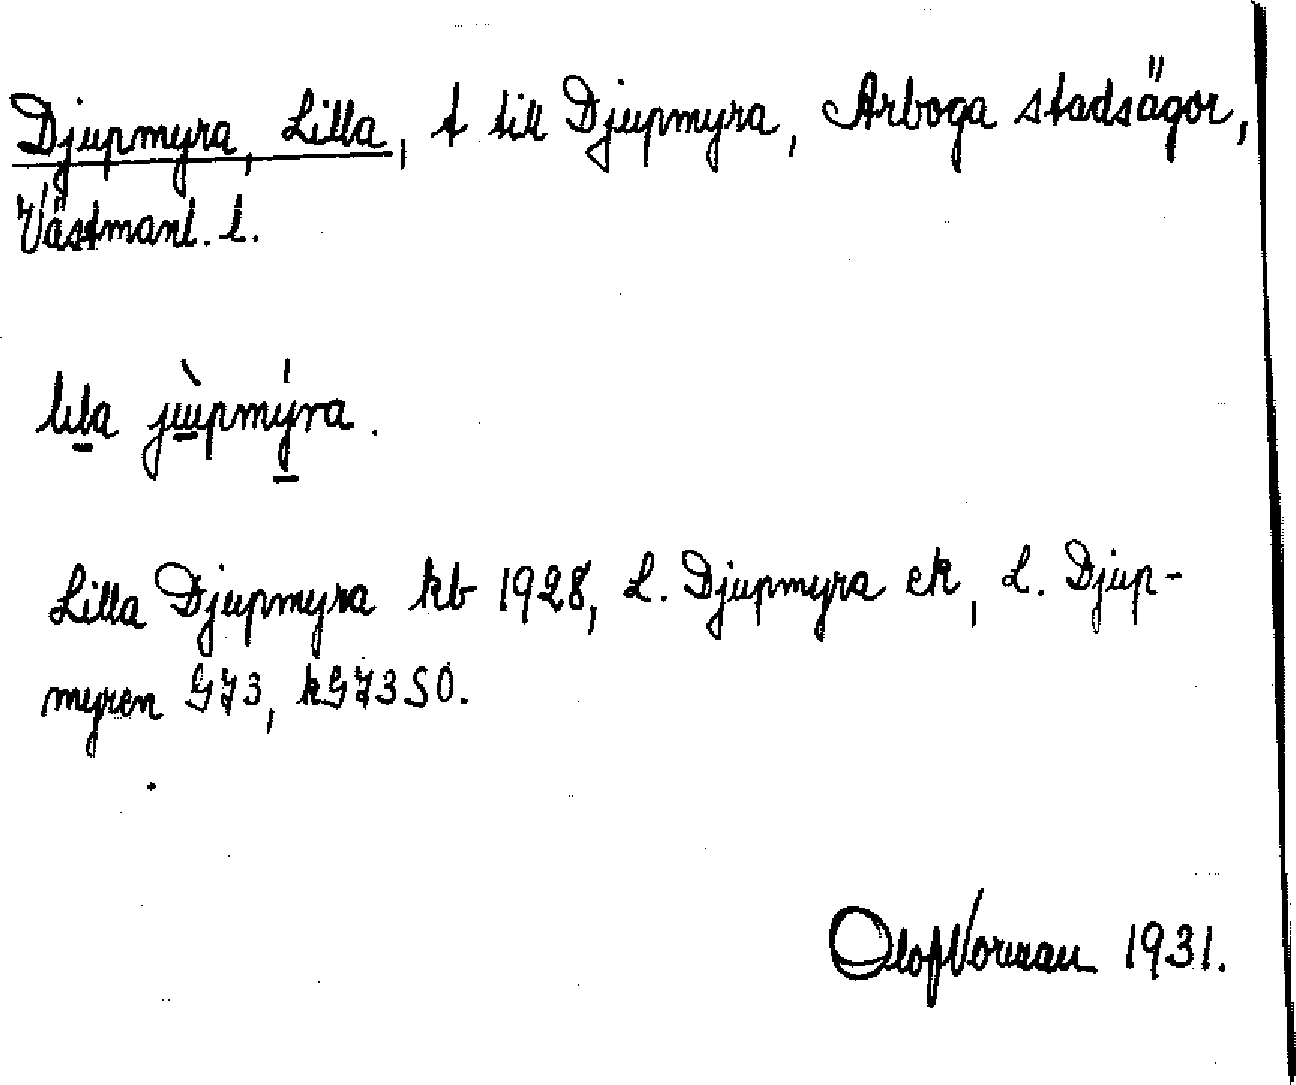 Djupmyra, Lilla, t till Djupmyra, Arboga stadsägor,
Västmanl. l.
lila jùpmýra.
Lilla Djupmyra kb 1928, L. Djupmyra ek, L. Djup-
myren GJ3, kGJ3SO.
Olof 1931.